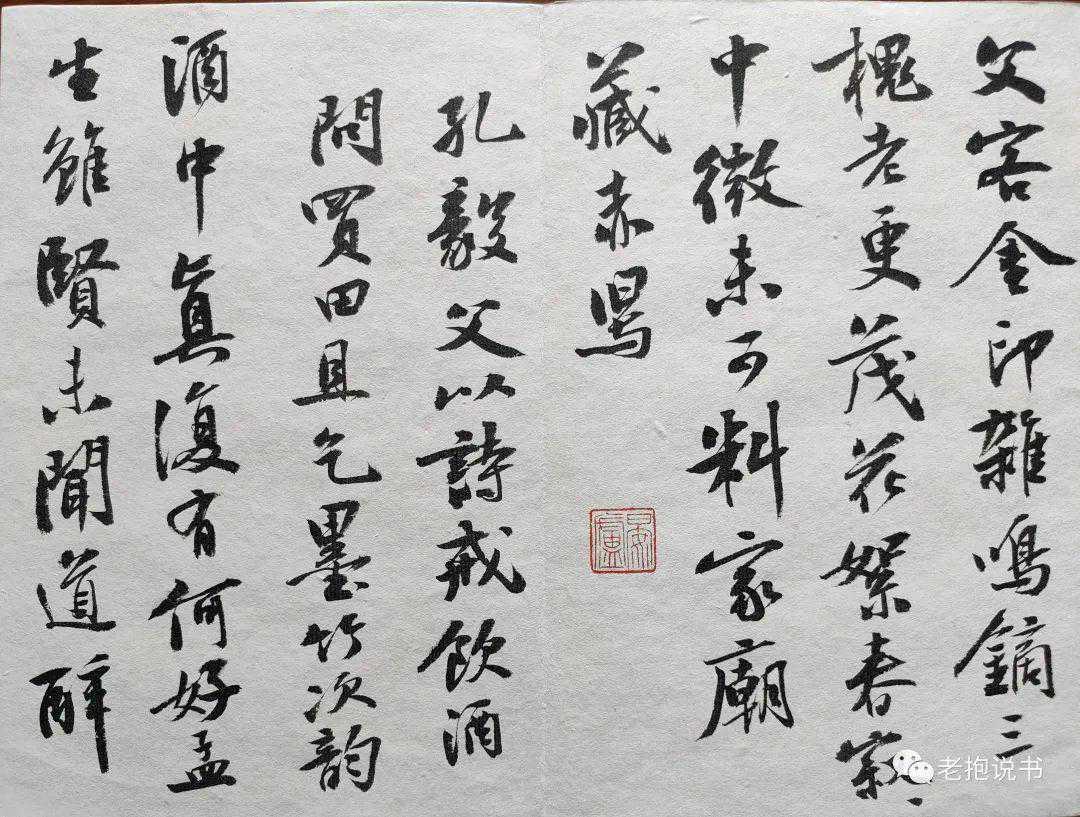 父客金印雜鳴鏑三
槐老更茂花絮春寂、
中微未可料家廟
藏赤舄
孔毅父以詩戒飲酒
問買田且乞墨竹次韵
酒中真復有何好孟
生雖賢未聞道醉
老抱说书